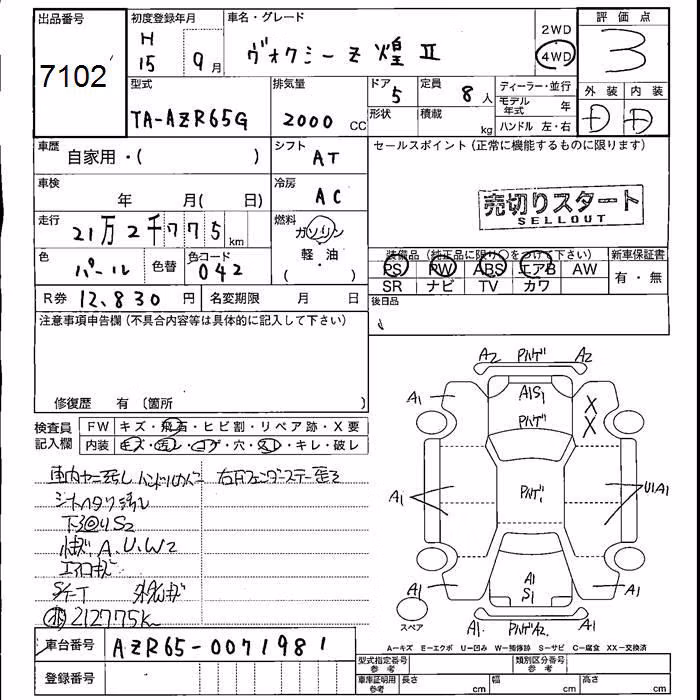 出品番号
7102
初度登録年月
H 15 9月
車名・グレード
ヴォクシー Z 煌 II
2WD
4WD
評価点
3
型式
TA-AZR65G
排気量
2000 CC
ドア
5
形状
定員
8人
積載
kg
ディーラー・並行
モデル年式 年
ハンドル 左・右
外装
内装
D D
車歴
自家用・( )
シフト
AT
セールスポイント(正常に機能するものに限ります)
売切りスタート
SELLOUT
車検
年 月( 日)
冷房
AC
走行
21万2千775km
燃料
ガソリン
軽・油
( )
色
パール
色替
色コード
042
装備品(純正品に限り○をつけて下さい)
PS PW ABS エアB AW
SR ナビ TV カワ
新車保証書
有・無
R券 12,830 円
名変期限 月 日
後日品
注意事項申告欄(不具合内容等は具体的に記入して下さい)
修復歴 有 (箇所
検査員記入欄
FW キズ・飛石・ヒビ割・リペア跡・X要
内装 キズ・汚レ・コゲ・穴・スレ・キレ・破レ
シートヘタリ汚レ
小キズ A.U.W2
エアロキズ
212775K
A2 Pハゲ A2
A1 A1S1 A1
Pハゲ
X
X
A1 Pハゲ U1A1
A1 A1 S1 A1
A1 Pハゲ A2 A1
スペア
A-キズ E-エクボ U-凹み W-補修跡 S-サビ C-腐食 XX-交換済
車台番号
AZR65-0071981
登録番号
型式指定番号 参考
類別区分番号 参考
車庫証明用 参考
長さ cm
幅 cm
高さ cm